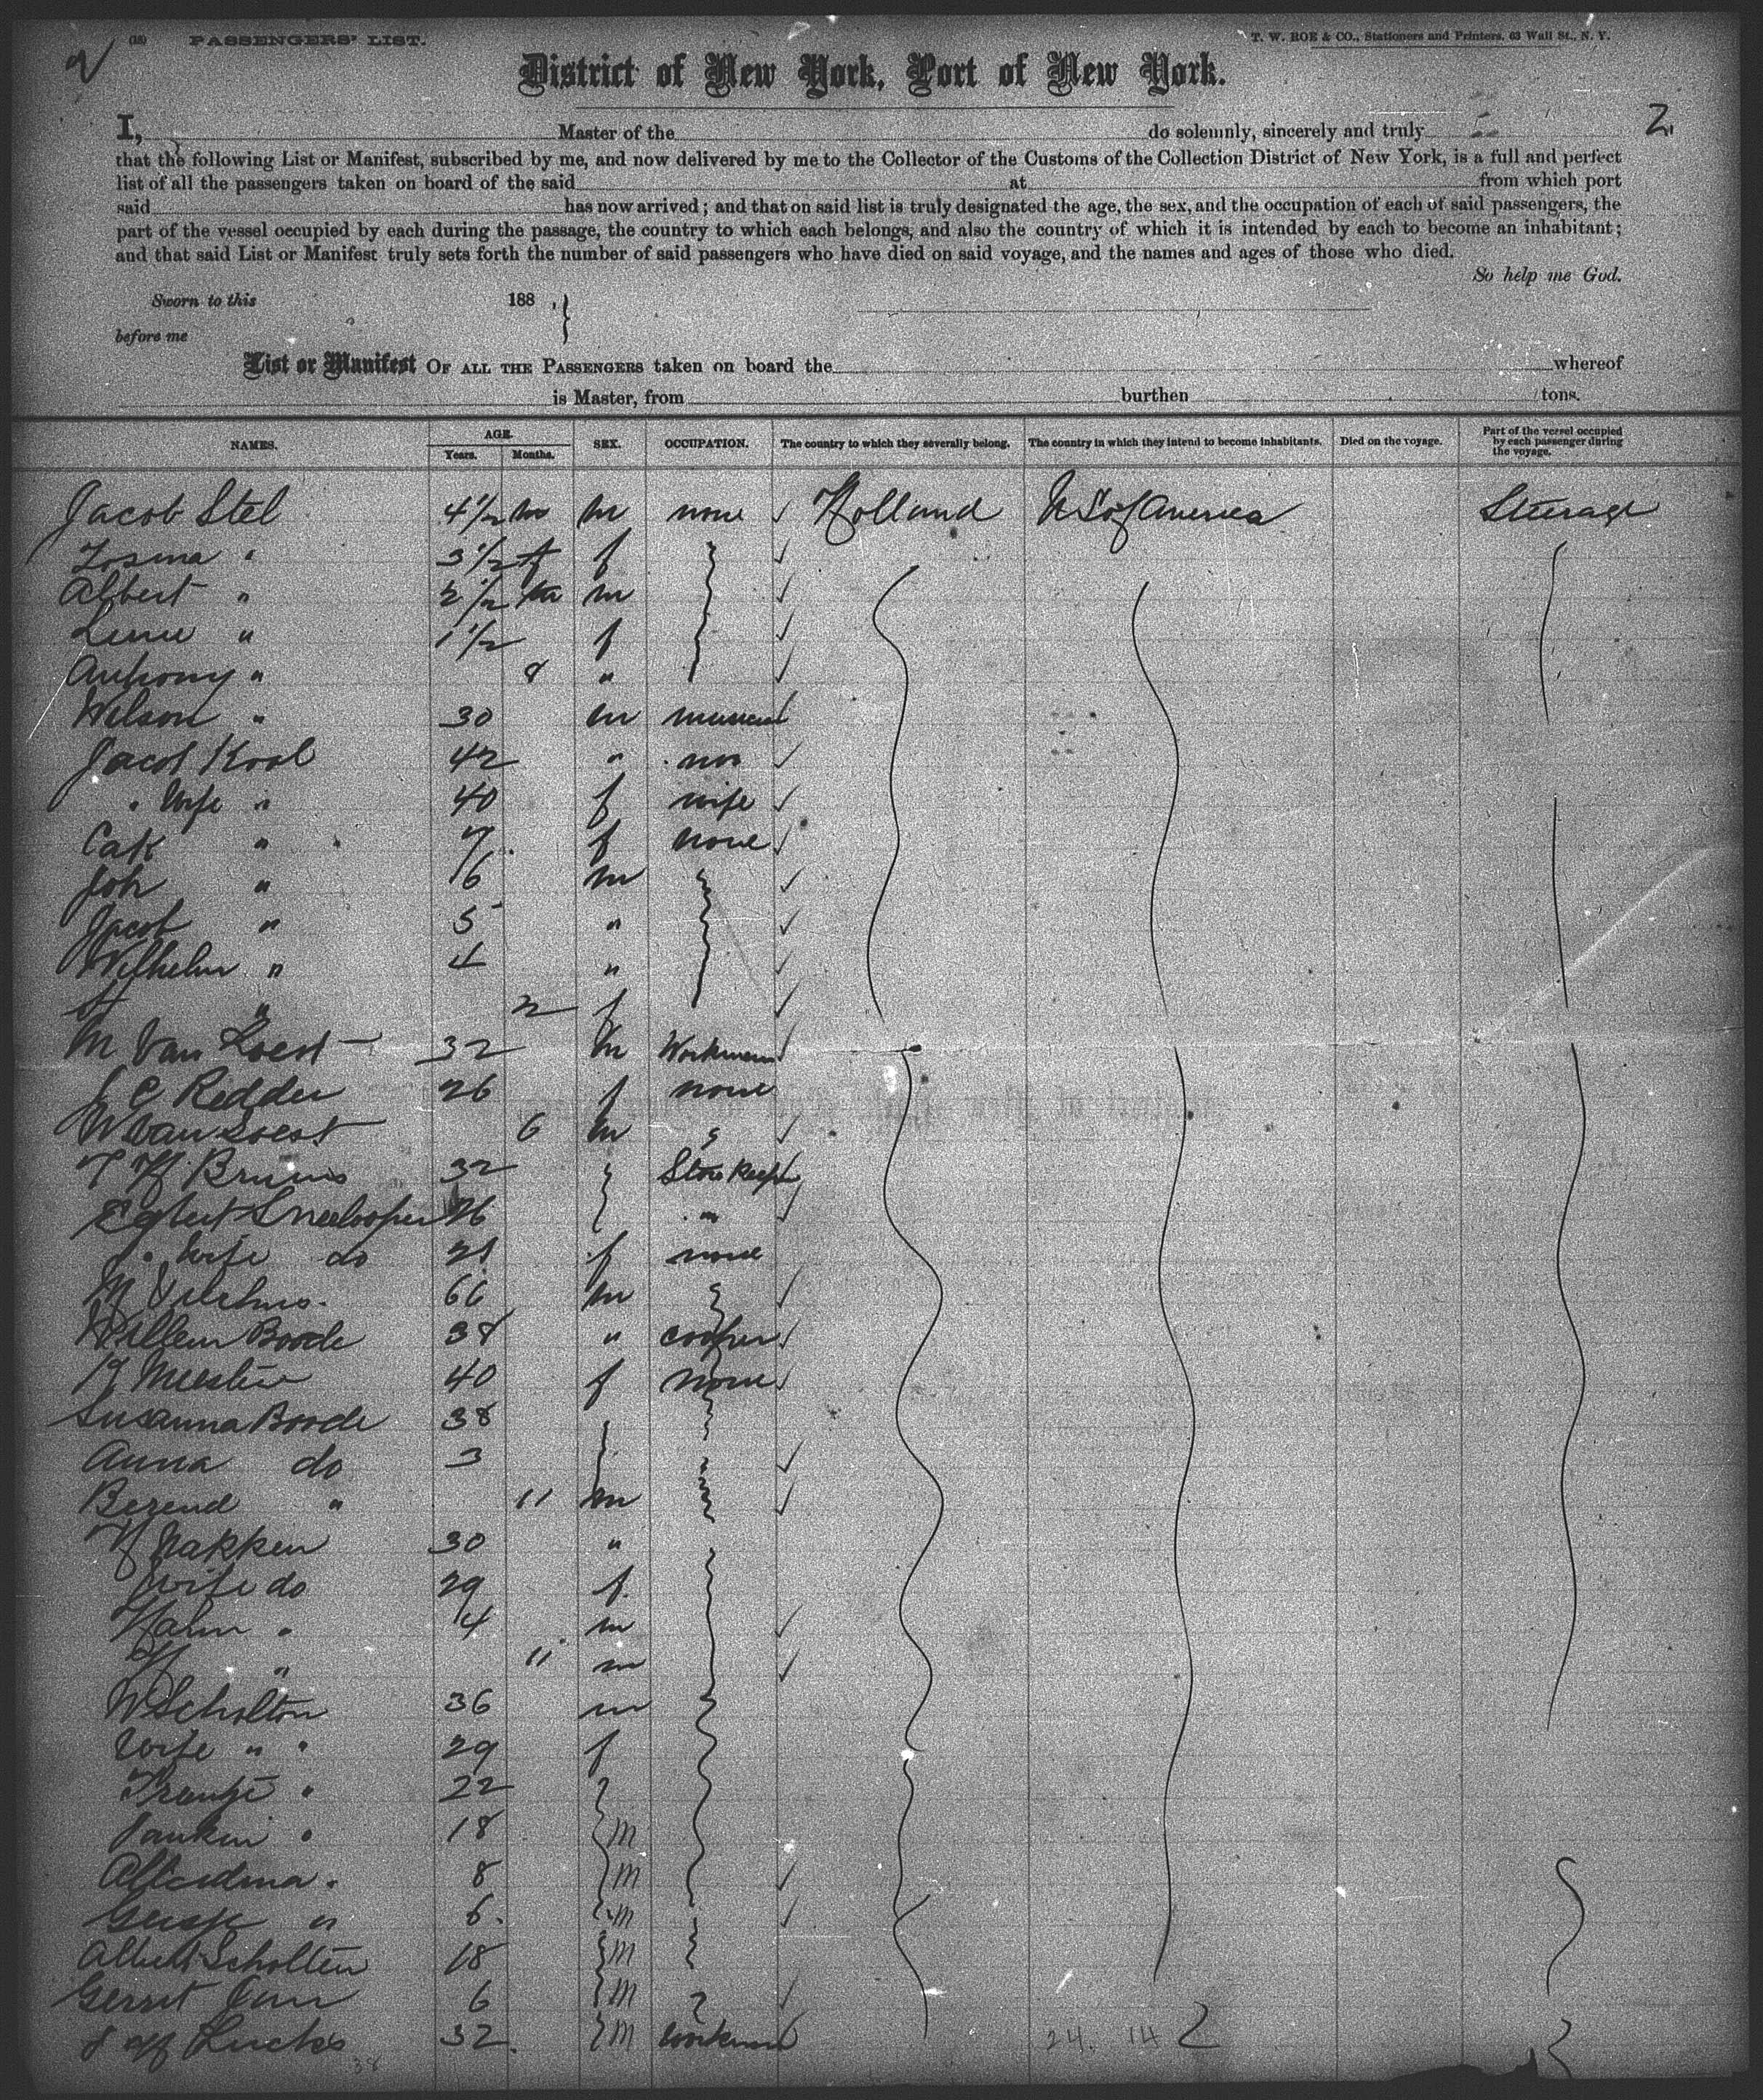 (13) PASSENGERS' LIST. T. W. ROE & CO., Stationers and Printers, 63 Wall St., N. Y.
District of New York, Port of New York.
2
I, Master of the do solemnly, sincerely and truly
that the following List or Manifest, subscribed by me, and now delivered by me to the Collector of the Customs of the Collection District of New York, is a full and perfect
list of all the passengers taken on board of the said at from which port
said has now arrived; and that on said list is truly designated the age, the sex, and the occupation of each of said passengers, the
part of the vessel occupied by each during the passage, the country to which each belongs, and also the country of which it is intended by each to become an inhabitant;
and that said List or Manifest truly sets forth the number of said passengers who have died on said voyage, and the names and ages of those who died.
So help me God.
Sworn to this 188 ,
before me
List or Manifest OF ALL THE PASSENGERS taken on board the whereof
is Master, from burthen tons.
NAMES. AGE. Years. Months. SEX. OCCUPATION. The country to which they severally belong. The country in which they intend to become inhabitants. Died on the voyage. Part of the vessel occupied by each passenger during the voyage.
Jacob Stel 4 1/2 m m none Holland U S of America Steerage
" 3 1/2 f f
Albert " 2 1/2 m m
" 1 1/2 f
Anthony " 8 "
Wilson " 30 m
Jacob Kool 42 "
" Wife " 40 f wife
" 7 f none
Joh " 6 m
Jacob " 5 "
Wilhelm " 4 "
" 2 f
M Van Loest 32 m Workman
Redder 26 f none
W Van Loest 6 m
Bruins 32 Store keeper
Egbert 26 "
" Wife do 21 f none
M 66 m
Willem Boode 38 " cooper
40 f none
Susanna Boode 38
Anna do 3
Berend " 11 m
H Nakken 30 "
Wife do 29 f
Harm " 4 m
H " 11 m
W Scholton 36 m
Wife " " 29 f
" 22
" 18 m
" 8 m
" 6 m
Albert Scholten 18 m
Gerrit Jan 6 m
32 m workman
38 24. 14